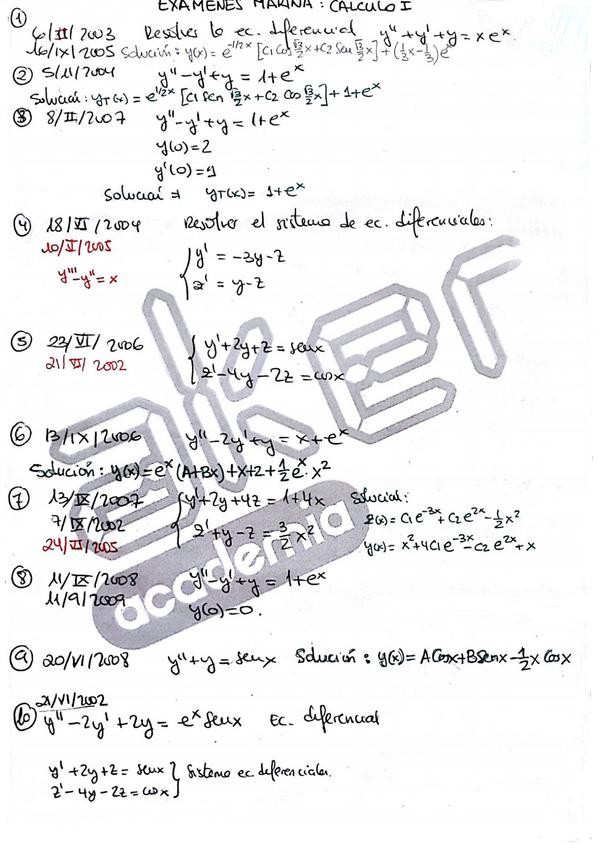 EXAMENES MARINA: CALCULO I
① 6/II/2003 Resolver la ec. diferencial y''+y'+y = x eˣ.
16/IX/2005 Solución: y(x)=e^(-1/2x) [C1 Cos √3/2 x + C2 Sen √3/2 x] + (1/3x - 1/3)eˣ
② 5/II/2004 y''-y'+y = 1+eˣ
Solución: yT(x)=e^(1/2x) [C1 Sen √3/2 x + C2 Cos √3/2 x] + 1+eˣ
③ 8/II/2007 y''-y'+y = 1+eˣ
y(0)=2
y'(0)=1
Solución ⇒ yT(x)= 1+eˣ
④ 18/VI/2004 Resolver el sistema de ec. diferenciales:
10/II/2005 { y' = -3y-z
y'''-y''=x z' = y-z
⑤ 22/VI/2006 { y'+2y+z = senx
21/VI/2002 z'-4y-2z = cosx
⑥ 13/IX/2006 y''-2y'+y = x+eˣ
Solución: y(x)=eˣ(A+Bx)+x+2+1/2 eˣ·x²
⑦ 13/IX/2007 { y'+2y+4z = 1+4x Solución:
7/IX/2002 z'+y-z = 3/2 x² z(x)=C1e^(-3x)+C2e^(2x)-1/2x²
24/VI/2005 y(x)= x²+4C1e^(-3x)-C2e^(2x)+x
⑧ 11/IX/2008 y''-y'+y = 1+eˣ
11/9/2009 y(0)=0.
⑨ 20/VI/2008 y''+y = senx Solución: y(x)=ACosx+BSenx-1/2x Cosx
21/VI/2002
⑩ y''-2y'+2y = eˣ senx Ec. diferencial
y'+2y+z = senx } Sistema ec. diferenciales.
z'-4y-2z = cosx
aker
academia